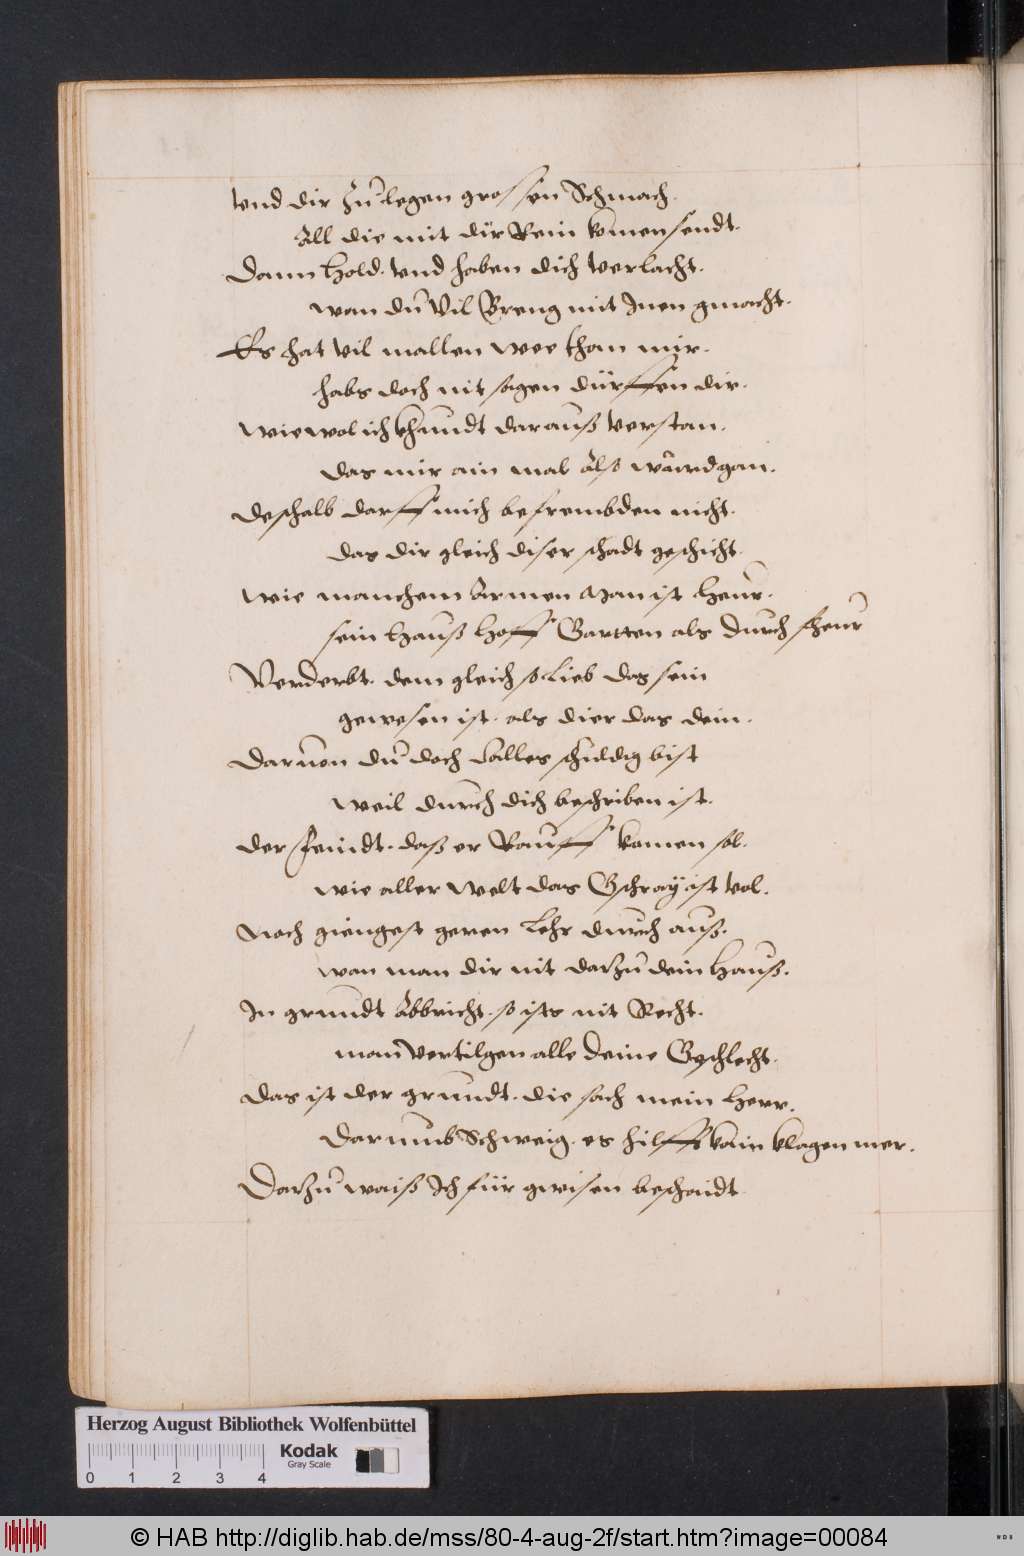 Vnd dir Zů legen grossen Schmach.
All die mit dir Rein komen sendt.
Dann Hold. Vnd haben dich Verlacht.
wan dů Vil Breng mit Inen gmacht.
Es hat Vil mallen wee than mir.
habs doch nit sagen dürffen dir.
wiewol ich khundt darauß Verstan.
das mir ain mal Also wůrd gan.
deshalb darff mich befrembden nicht.
das dir gleich diser schadt geschicht.
wie manchem Armen Man ist Heur.
sein Hauß Hoff Gartten als durch fheur
Verderbt. dem gleich so Lieb das sein
gewesen ist. als dier das dein.
daruon dů doch alles schuldig bist
weil durch dich beschriben ist.
der Feindt. daß er Rauff komen sol.
wie aller welt das Gschray ist Vol.
Noch giengest geren Lehr durch auß.
wan man dir nit darzů dein Hauß.
In grundt Abbricht. so ists nit Recht.
man Vertilgen alle deine Gschlecht.
das ist der grundt. die sach mein Herr.
darumb Schweig. es hilfft kain klagen mer.
Darzů waiß Ich für gwisen beschaidt
Herzog August Bibliothek Wolfenbüttel
0 1 2 3 4
Kodak
Gray Scale
© HAB http://diglib.hab.de/mss/80-4-aug-2f/start.htm?image=00084